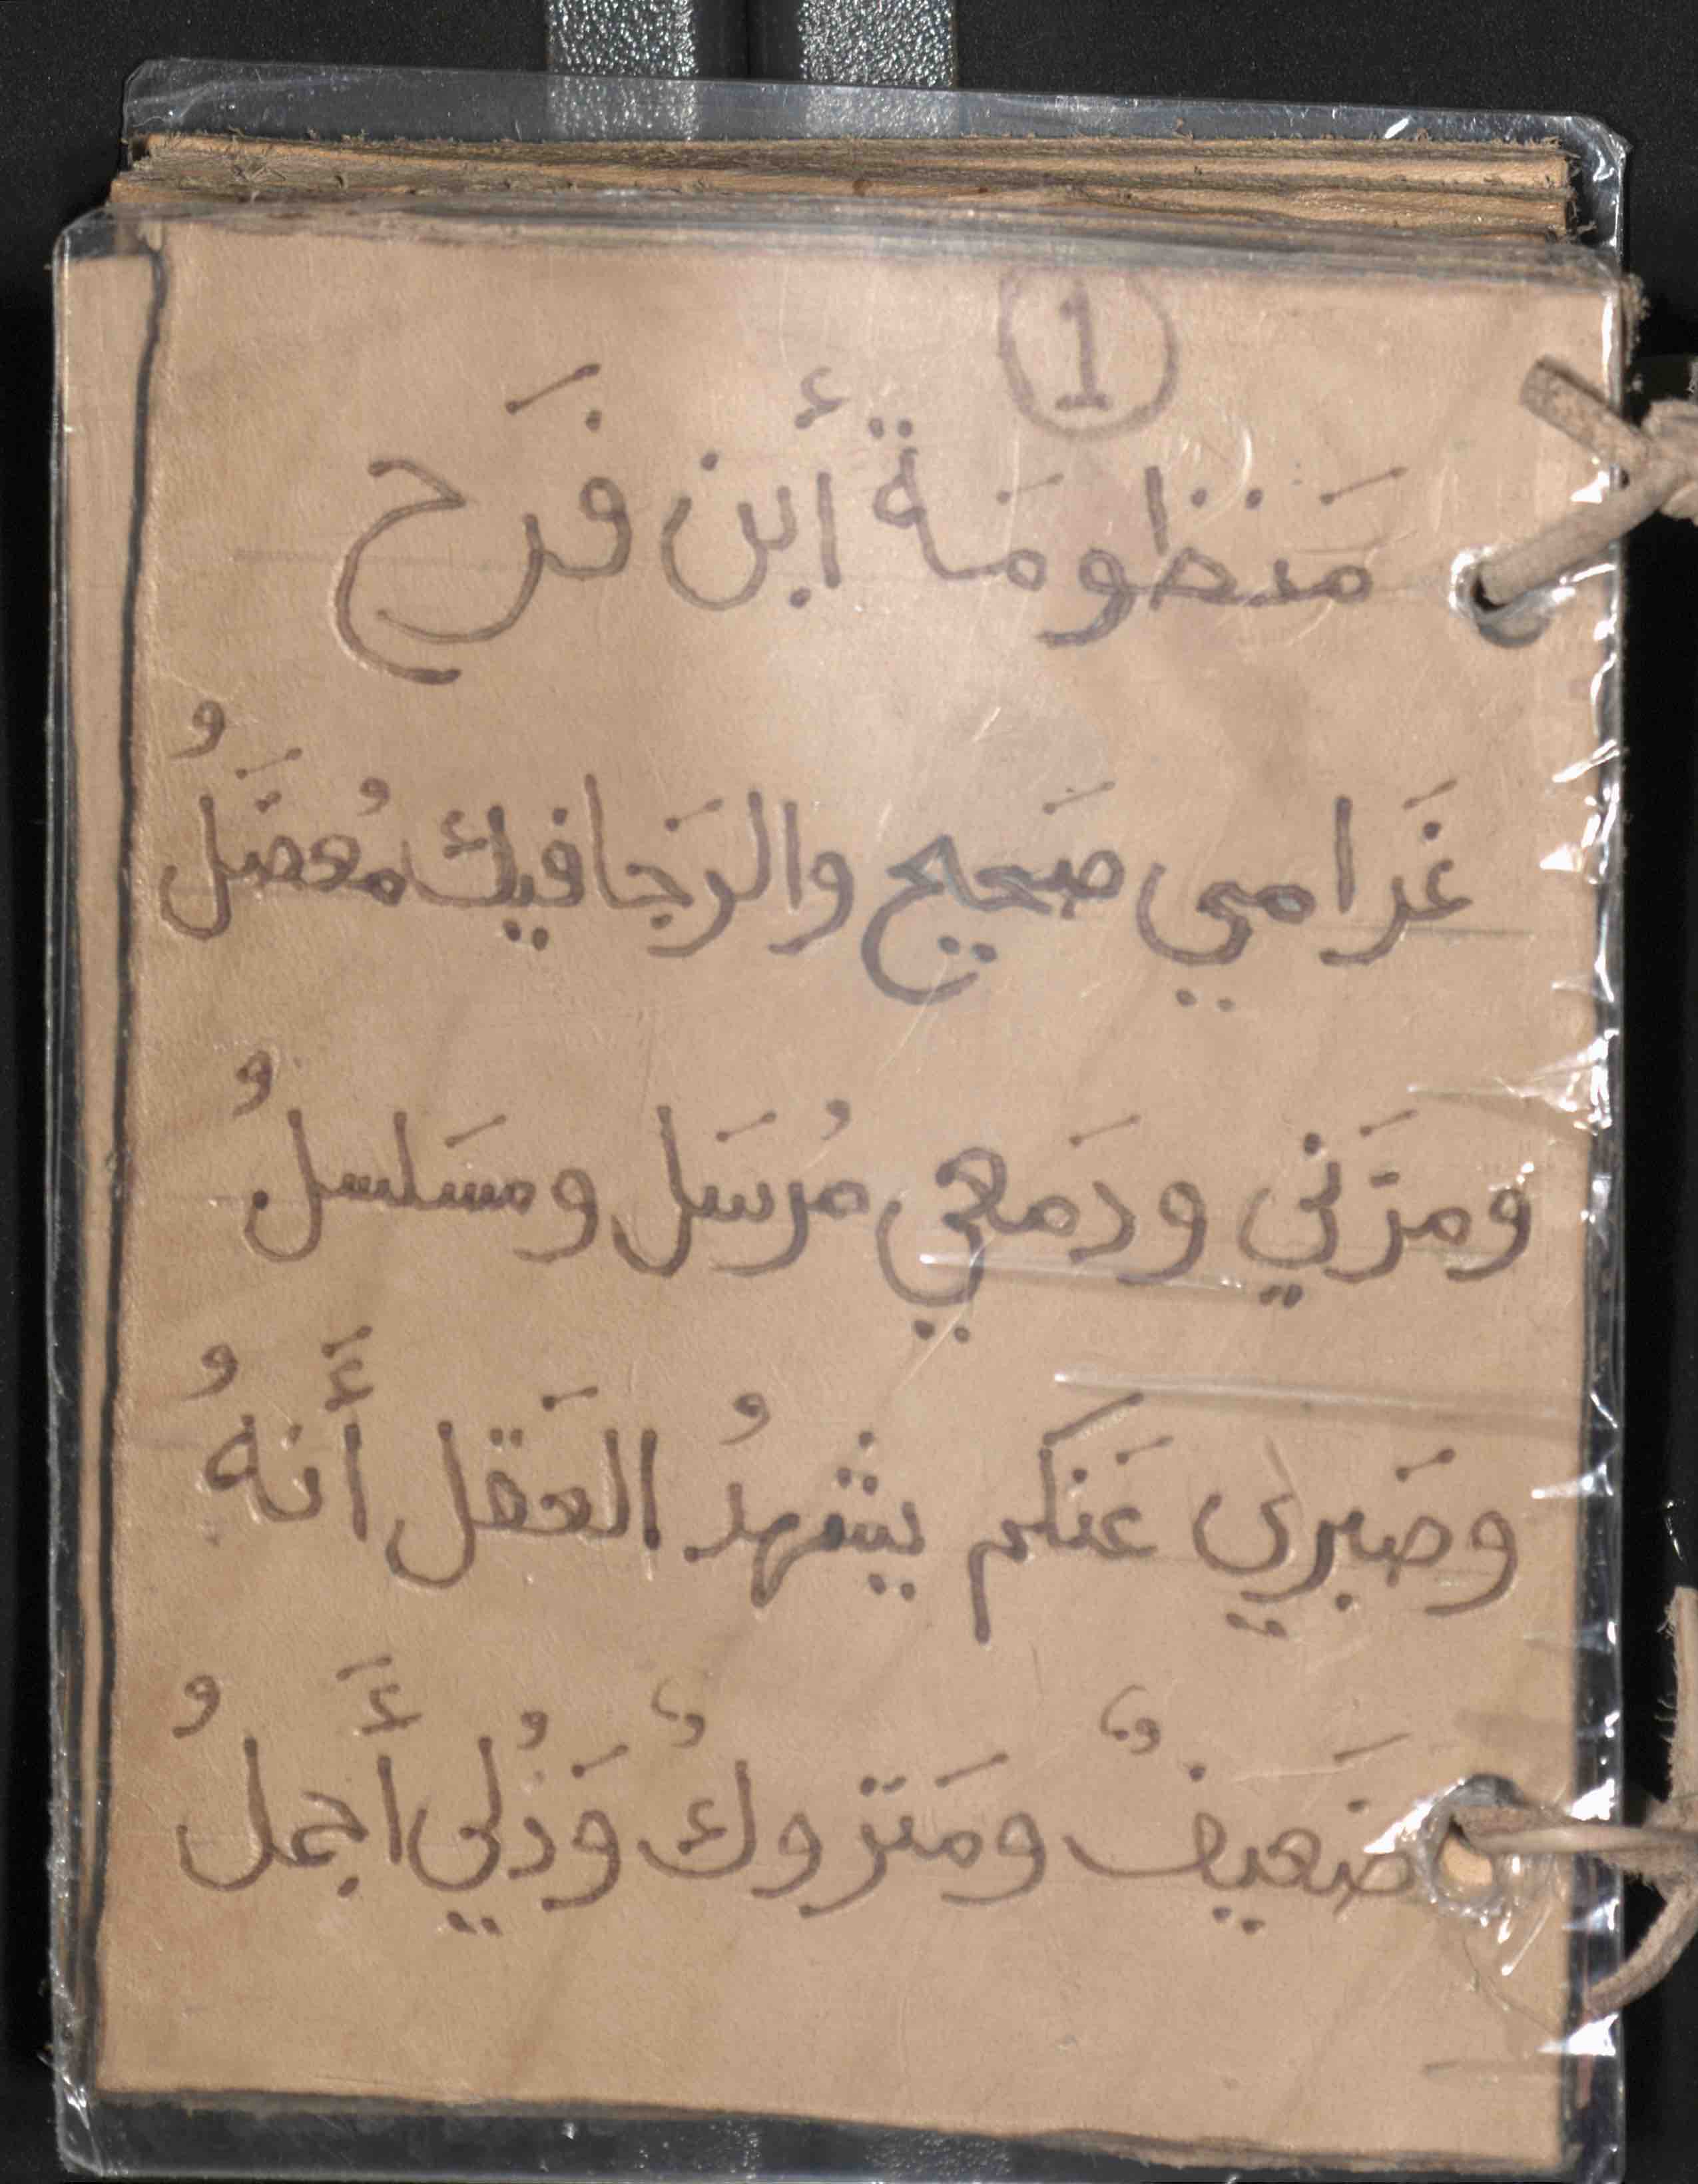 1
مَنظومَة أبن فَرَح
غَرامي صَحيح والرَجا فيك مُعضَلُ
ومرَّني ودَمعي مُرسَل ومسَلسلُ
وصَبري عَنكَم يشهدُ العَقل أَنهُ
ضَعيفٌ ومَتروكٌ وَذُلي أَجملُ